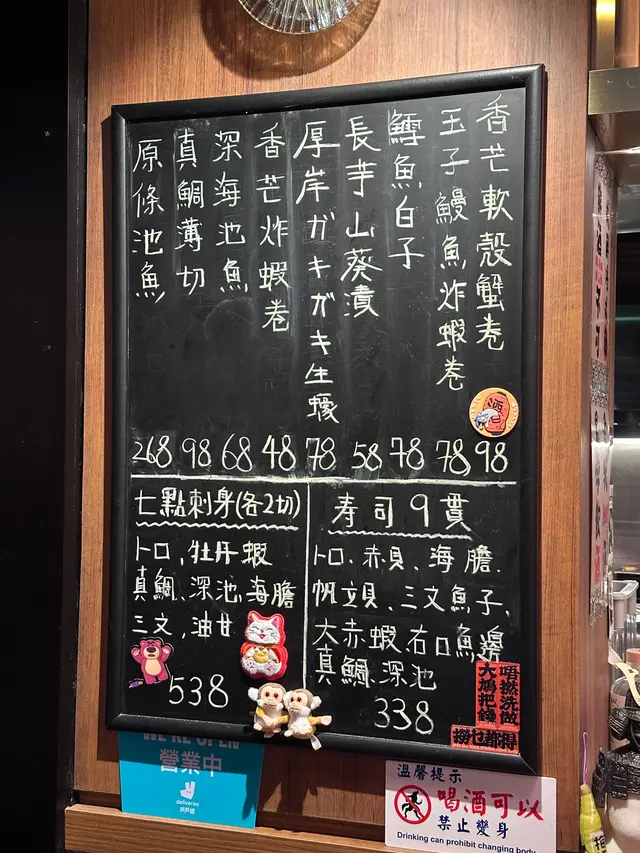 香芒軟殼蟹卷
玉子鰻魚炸蝦卷
鱈魚白子
長芋山葵漬
厚岸ガキガキ生蠔
香芒炸蝦卷
深海池魚
真鯛薄切
原條池魚
268 98 68 48 78 58 78 78 98
七點刺身(各2切)
トロ、牡丹蝦
真鯛、深池、海膽
三文,油甘
538
寿司9貫
トロ、赤貝、海膽、
帆立貝、三文魚子、
大赤蝦、右口魚邊
真鯛、深池
338
酒
唔撚洗做
大鳩把錢
撈乜都得
WE'RE OPEN
營業中
deliveroo
戶戶送
溫馨提示
喝酒可以
禁止變身
Drinking can prohibit changing body